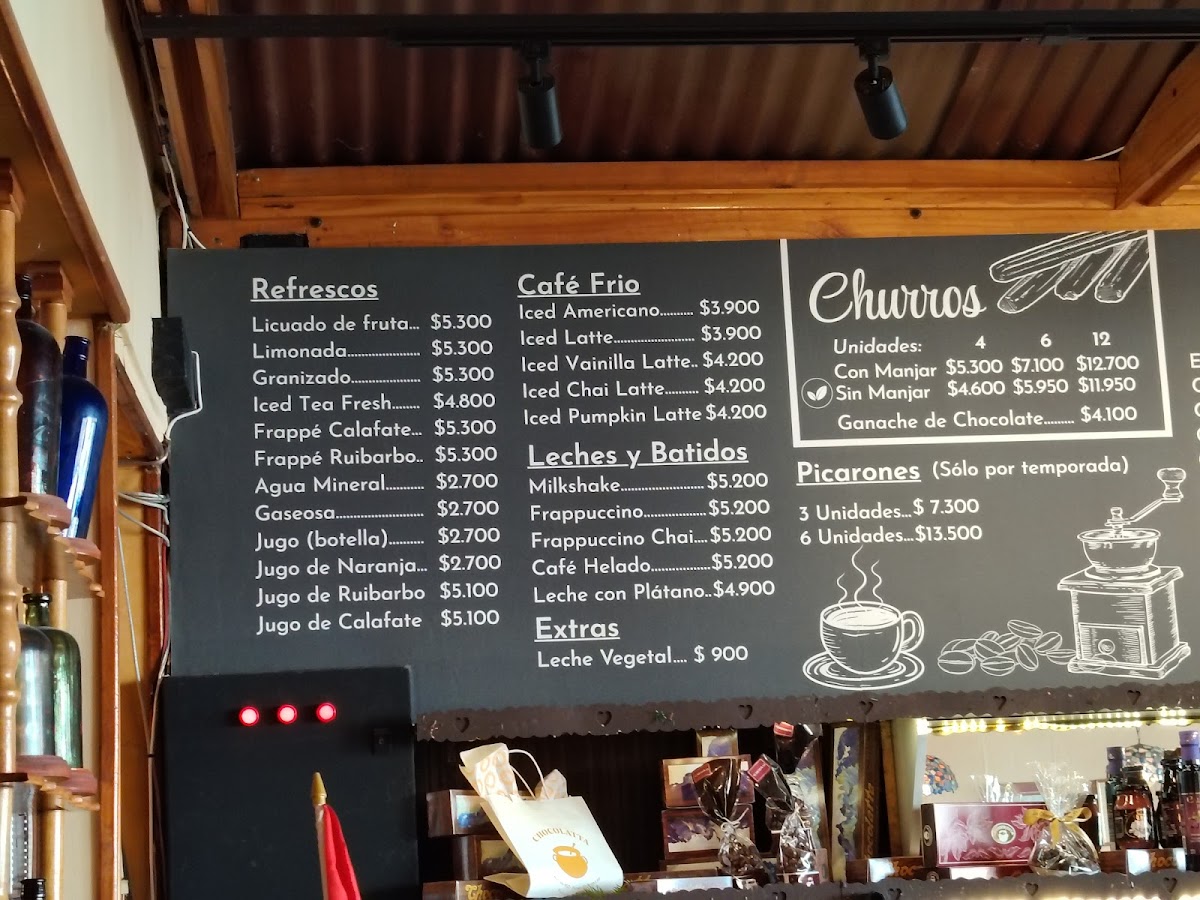 Refrescos
Licuado de fruta... $5.300
Limonada...................... $5.300
Granizado..................... $5.300
Iced Tea Fresh........ $4.800
Frappé Calafate... $5.300
Frappé Ruibarbo.. $5.300
Agua Mineral............ $2.700
Gaseosa........................... $2.700
Jugo (botella)........... $2.700
Jugo de Naranja... $2.700
Jugo de Ruibarbo $5.100
Jugo de Calafate $5.100
Café Frio
Iced Americano.......... $3.900
Iced Latte........................ $3.900
Iced Vainilla Latte.. $4.200
Iced Chai Latte.......... $4.200
Iced Pumpkin Latte $4.200
Leches y Batidos
Milkshake......................... $5.200
Frappuccino................... $5.200
Frappuccino Chai.... $5.200
Café Helado.................. $5.200
Leche con Plátano.. $4.900
Extras
Leche Vegetal.... $ 900
Churros
Unidades: 4 6 12
Con Manjar $5.300 $7.100 $12.700
Sin Manjar $4.600 $5.950 $11.950
Ganache de Chocolate......... $4.100
Picarones (Sólo por temporada)
3 Unidades... $ 7.300
6 Unidades... $13.500
CHOCOLATTA